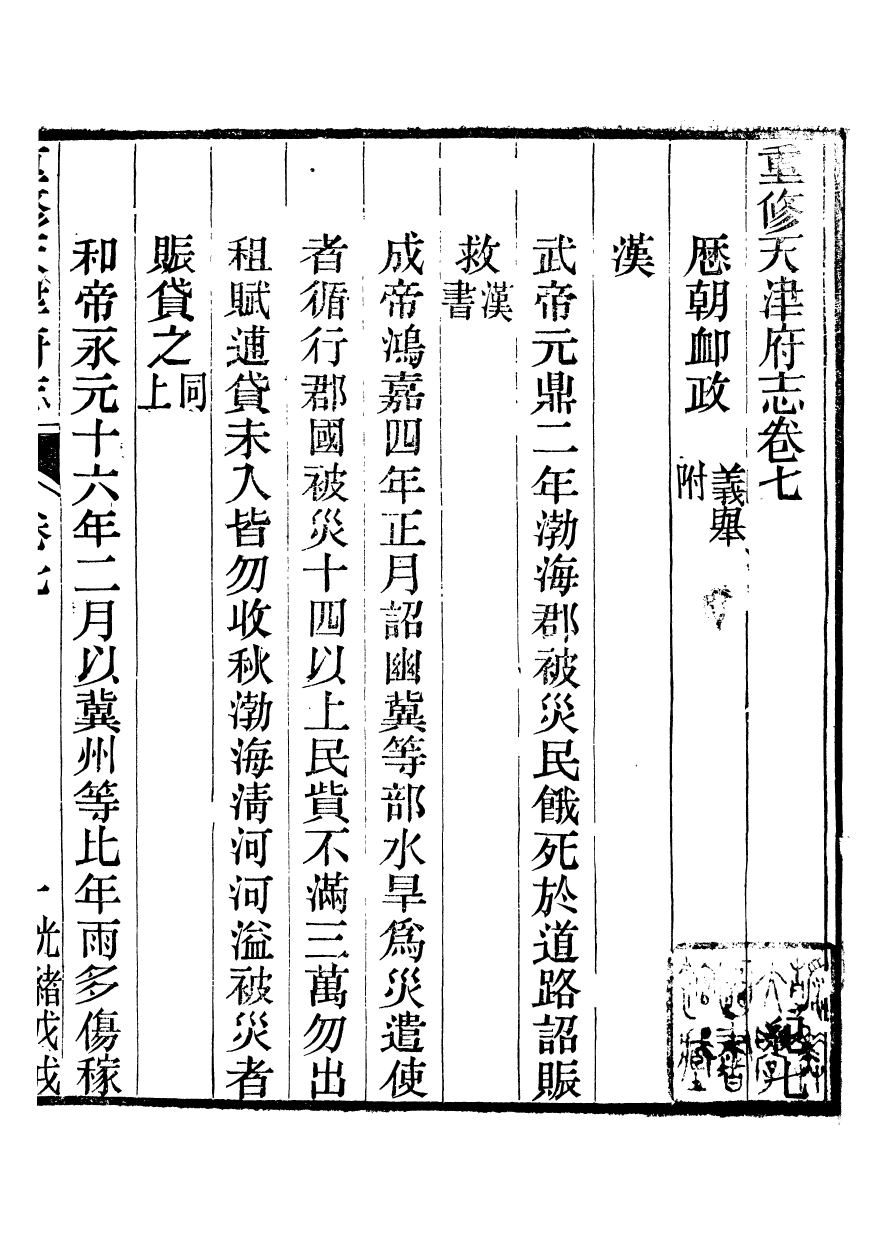 重修天津府志卷七
歷朝卹政 義舉附
漢
武帝元鼎二年渤海郡被災民餓死於道路詔賑
救 漢書
成帝鴻嘉四年正月詔幽冀等部水旱爲災遣使
者循行郡國被災十四以上民貲不滿三萬勿出
租賦逋貸未入皆勿收秋渤海淸河河溢被災者
賑貸之 同上
和帝永元十六年二月以冀州等比年雨多傷稼
重修天津府志 卷七 一 光緒戊戌